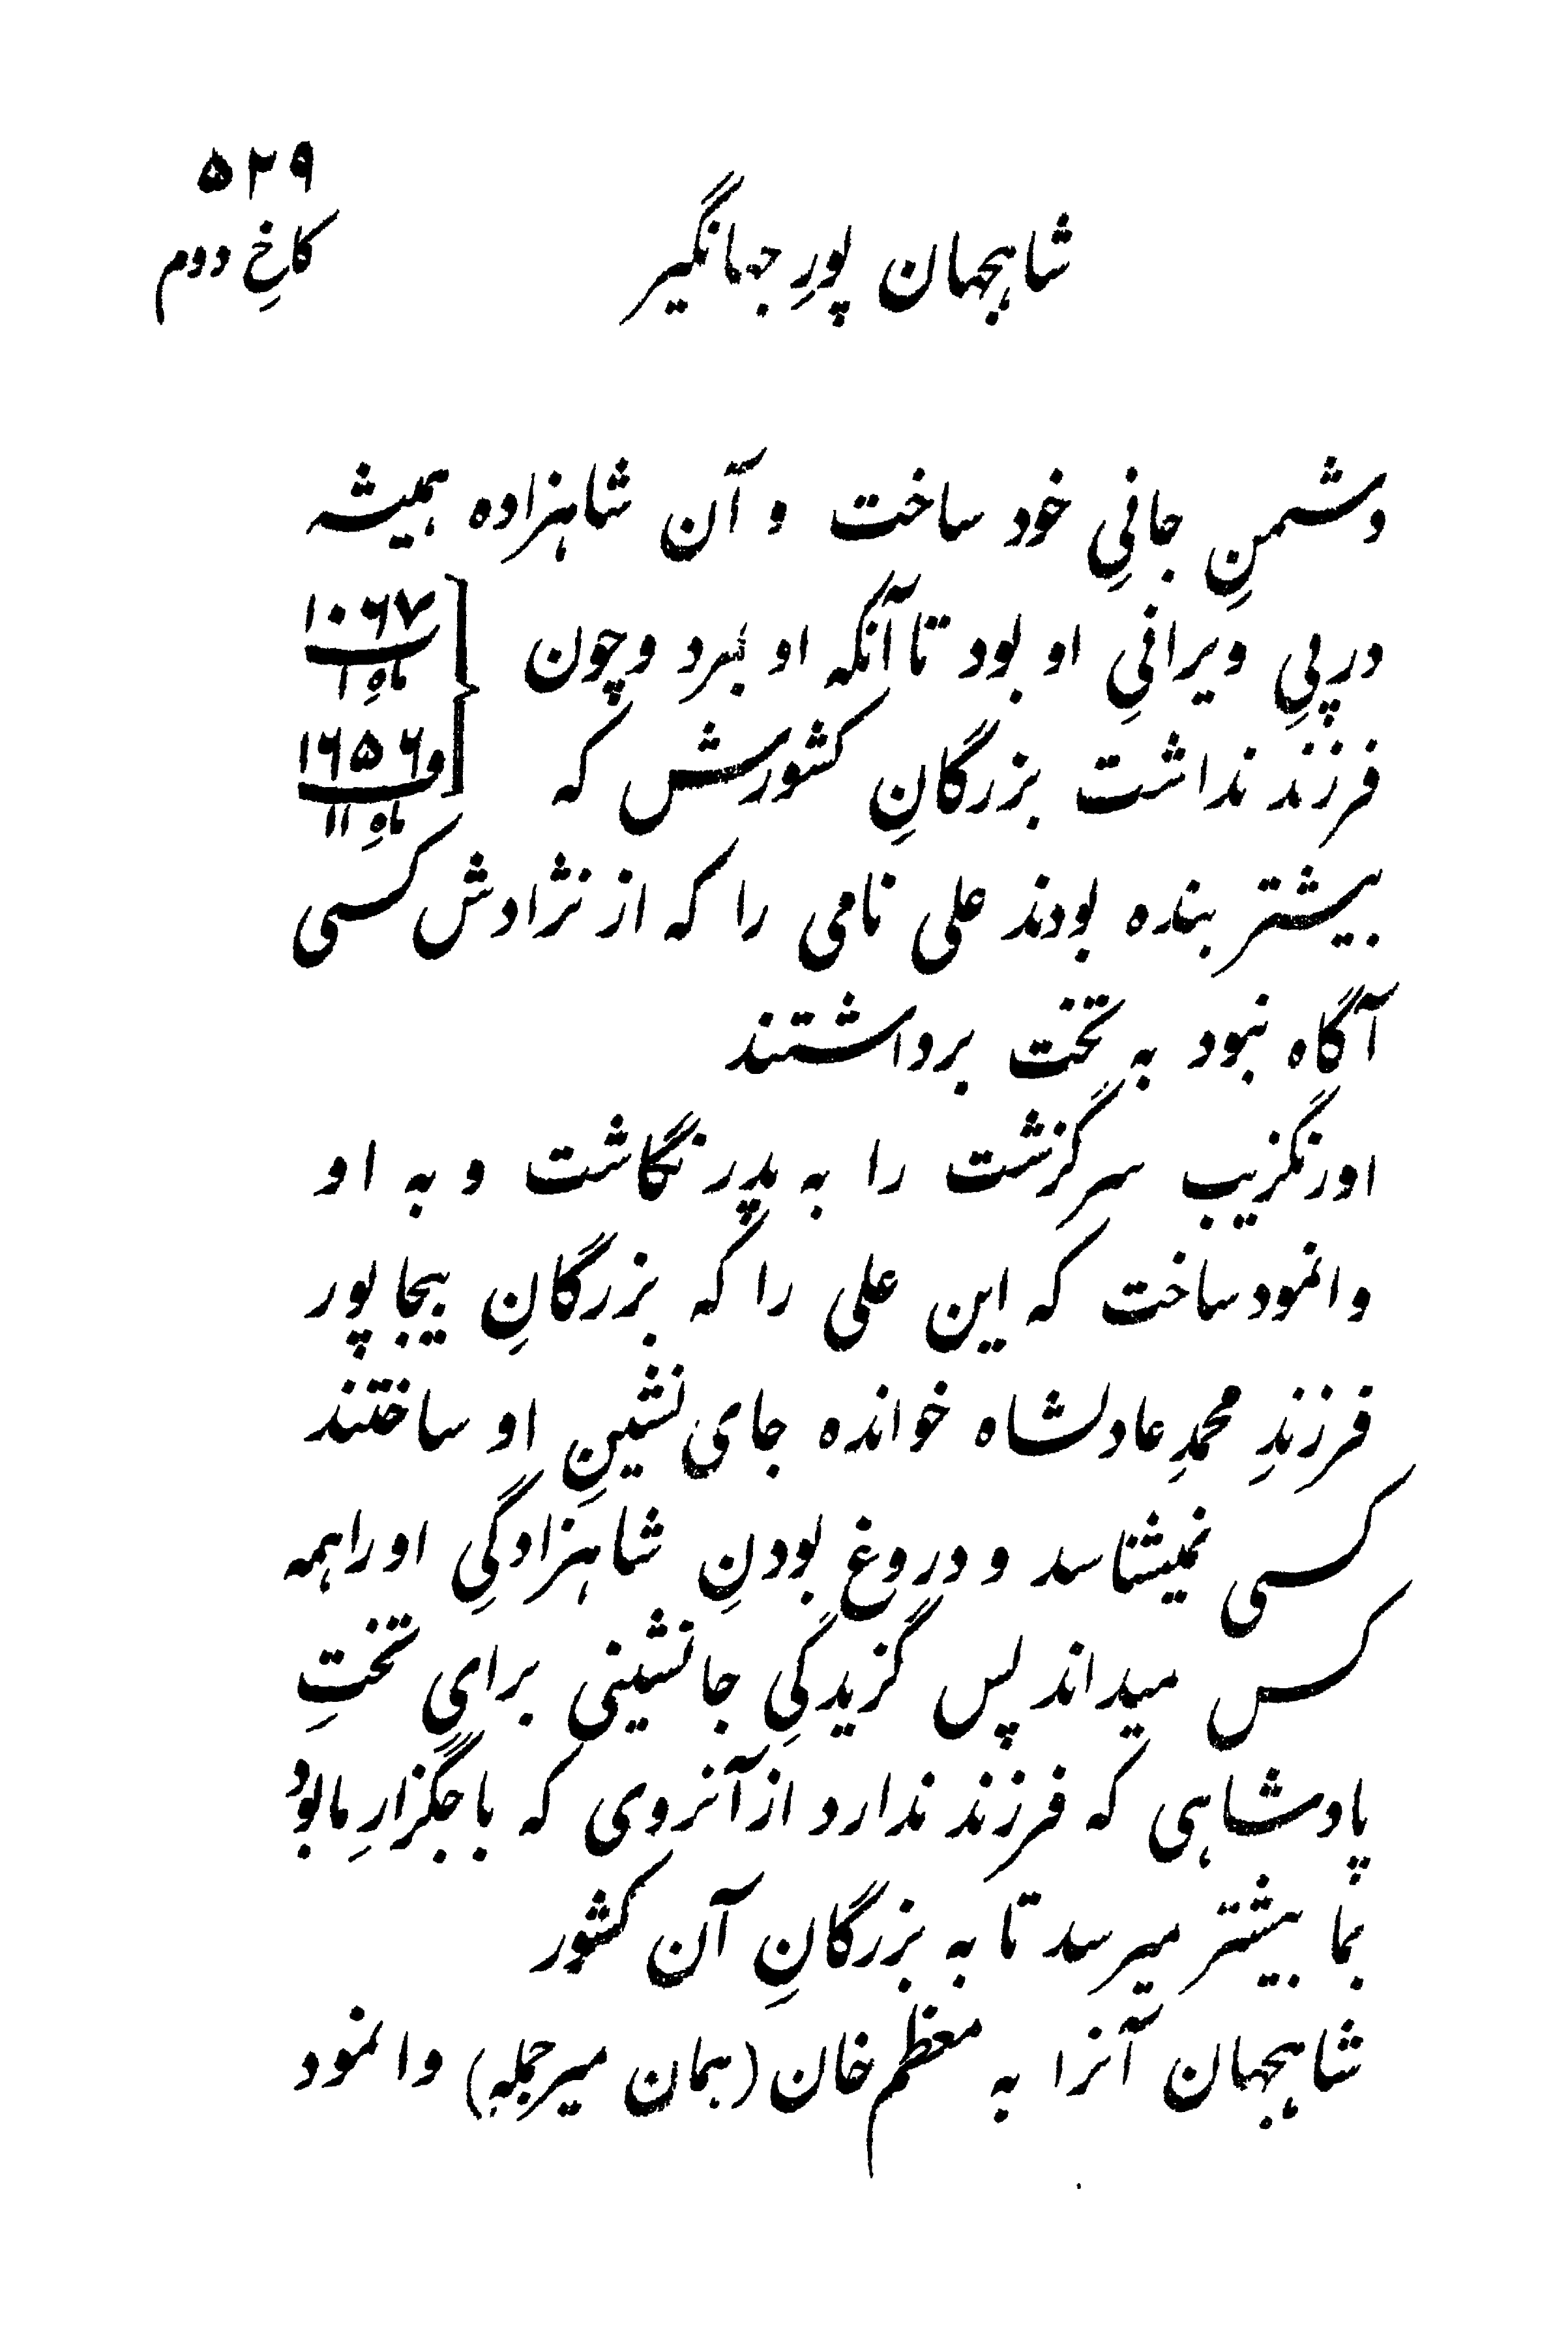 ۵۲۹
کاخِ دوم
شاہجہان پورِ جہانگیر
دشمنِ جانیِ خود ساخت و آن شاہزادہ ہمیشہ
در پیِ ویرانیِ او بود تا آنکہ او بمرد و چون
۱۰۶۷
ماہِ ۱
فرزند نداشت بزرگانِ کشورش کہ
و ۱۶۵۶
ماہِ ۱۱
بیشتر بندہ بودند علی نامی را کہ از نژادش کسی
آگاہ نبود بہ تخت برداشتند
اورنگزیب سرگزشت را بہ پدر نگاشت و بہ او
وانمود ساخت کہ این علی را کہ بزرگانِ بیجاپور
فرزندِ محمدِ عادلشاہ خواندہ جای نشینِ او ساختند
کسی نمیشناسد و دروغ بودنِ شاہزادگیِ او را ہمہ
کس میداند پس گزیدگیِ جانشینی برای تختِ
پادشاہی کہ فرزند ندارد از آنروی کہ باجگزارِ ما بود
بما بیشتر میرسد تا بہ بزرگانِ آن کشور
شاہجہان آنرا بہ معظم خان (ہمان میر جملہ) وانمود